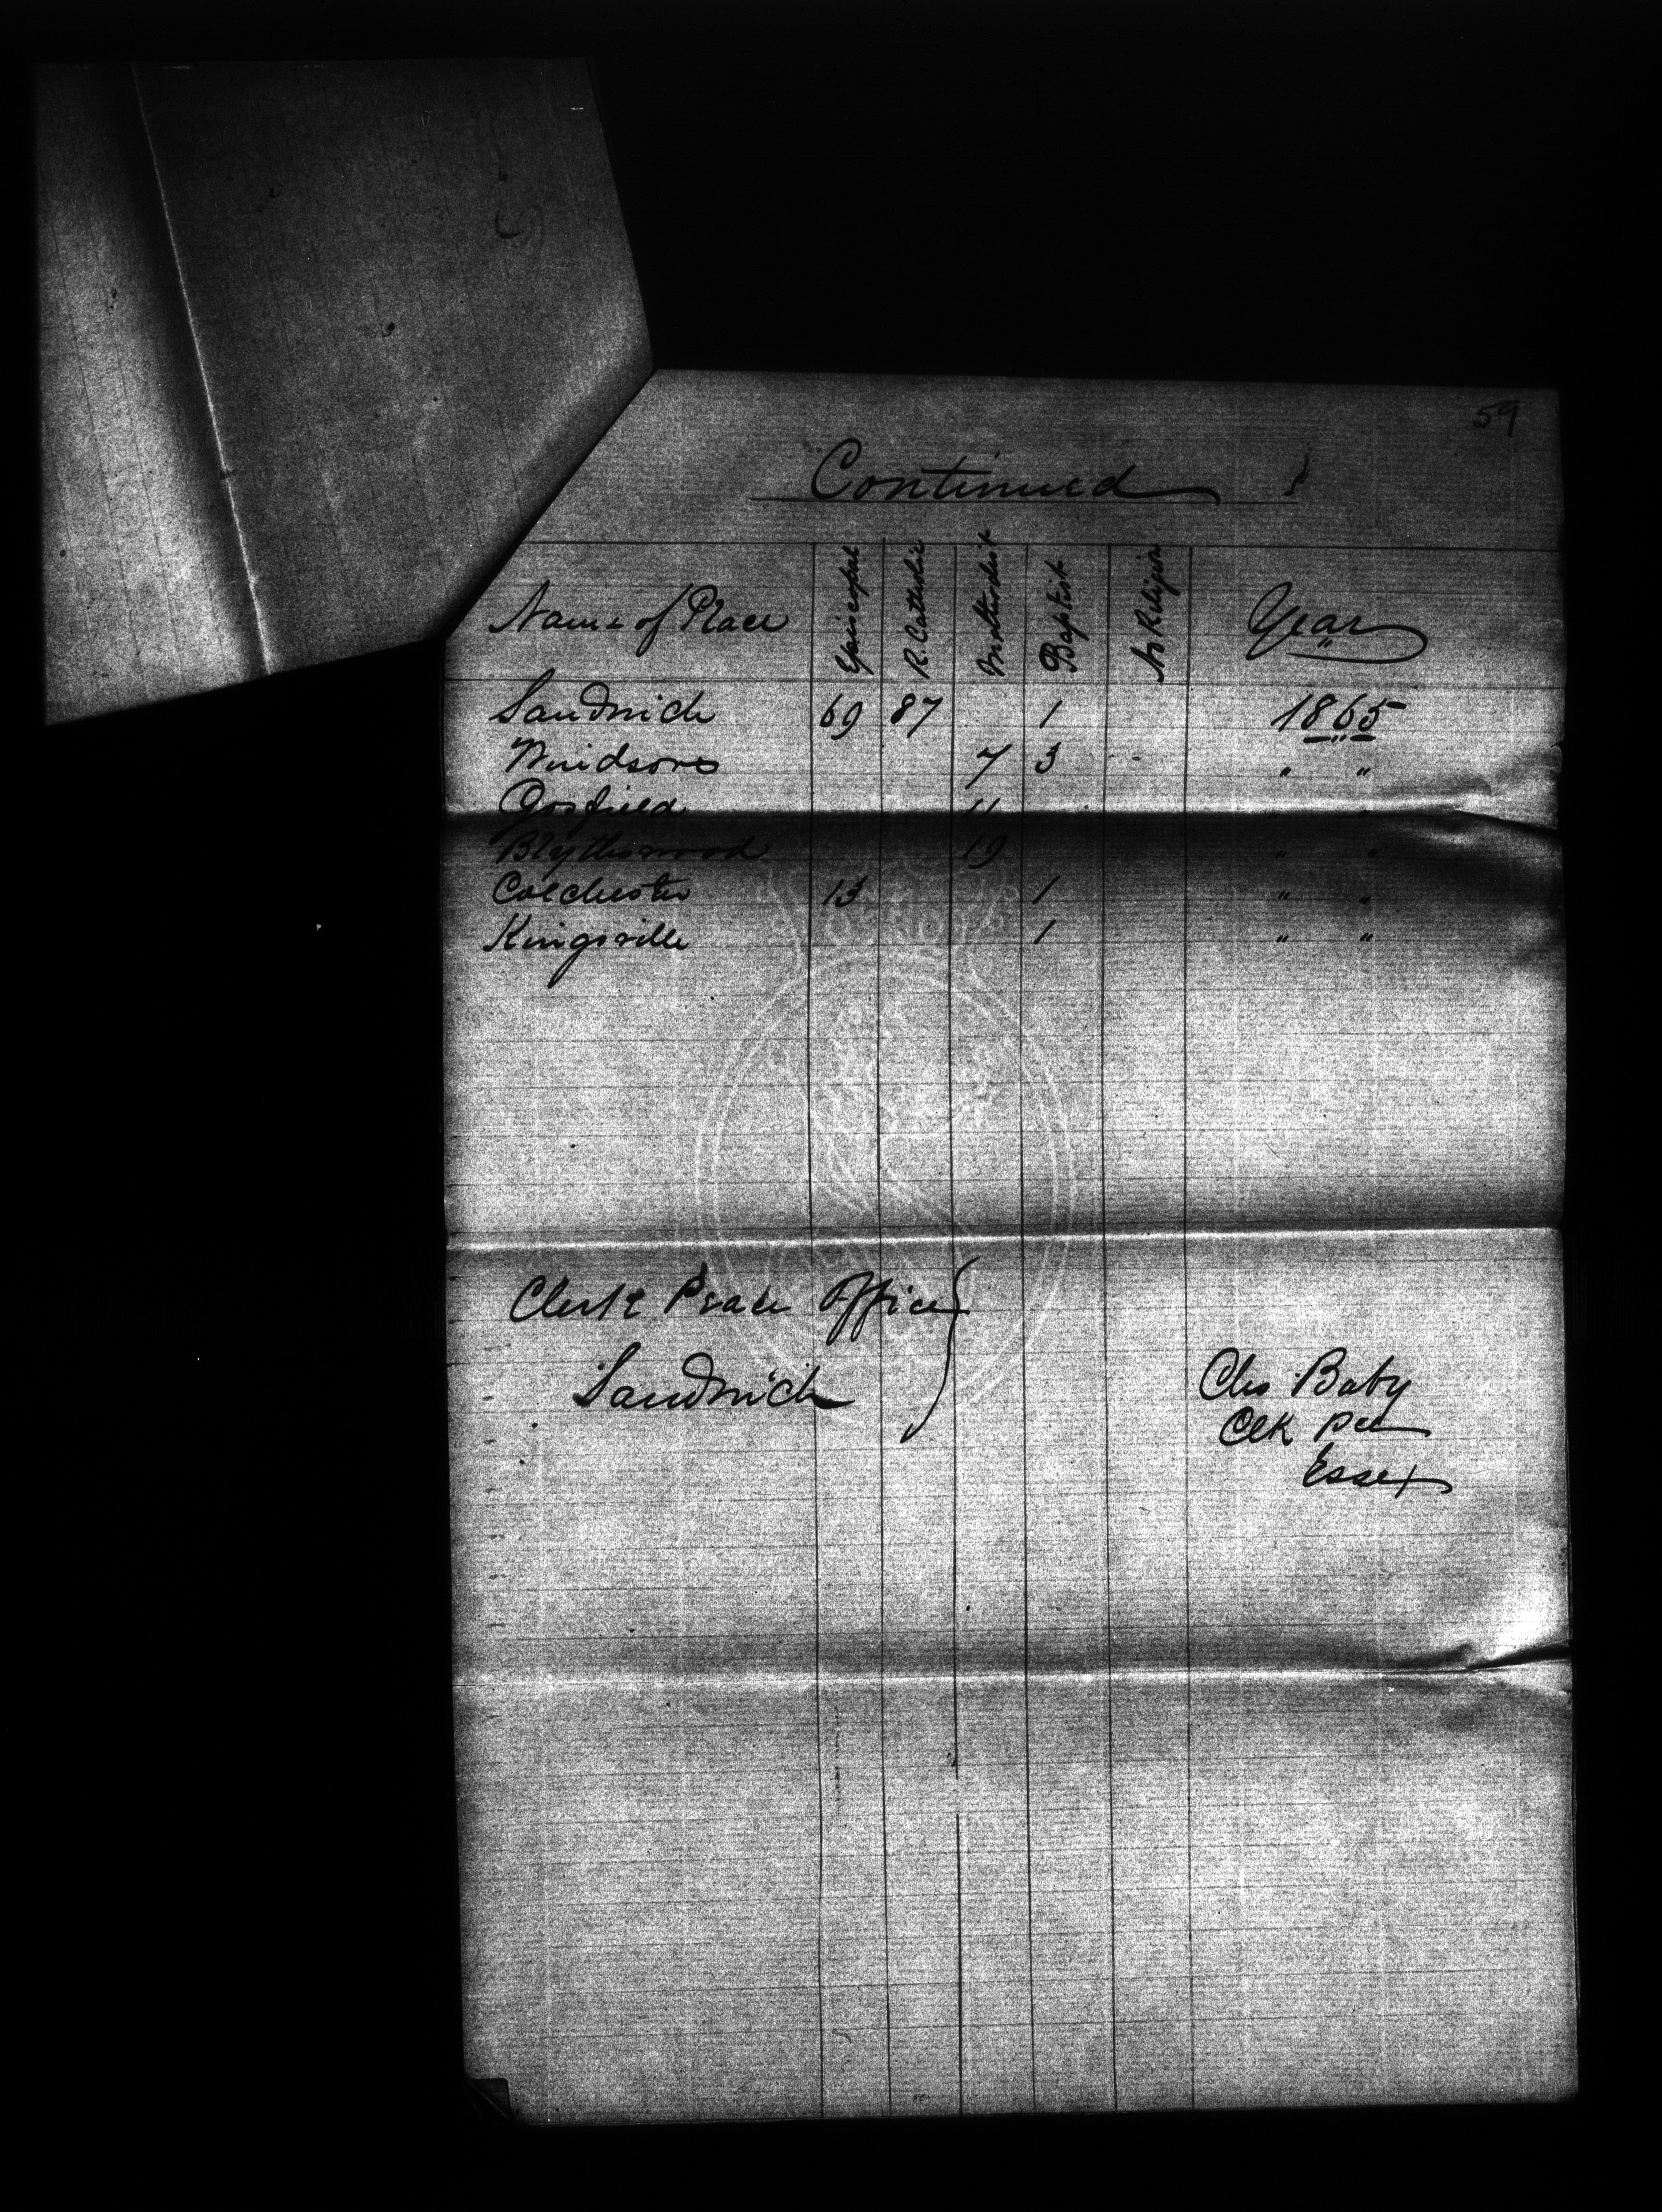 59
Continued
Name of Place Episcopal R. Catholic Methodist Baptist No Religion Year
Sandwich 69 87 1 1865
Windsor 7 3 " "
Gosfield 11 " "
Blytheswood 19 " "
Colchester 13 1 " "
Kingsville 1 " "
Clerk Peace Office
Sandwich
Chs Baby
Clk
Essex